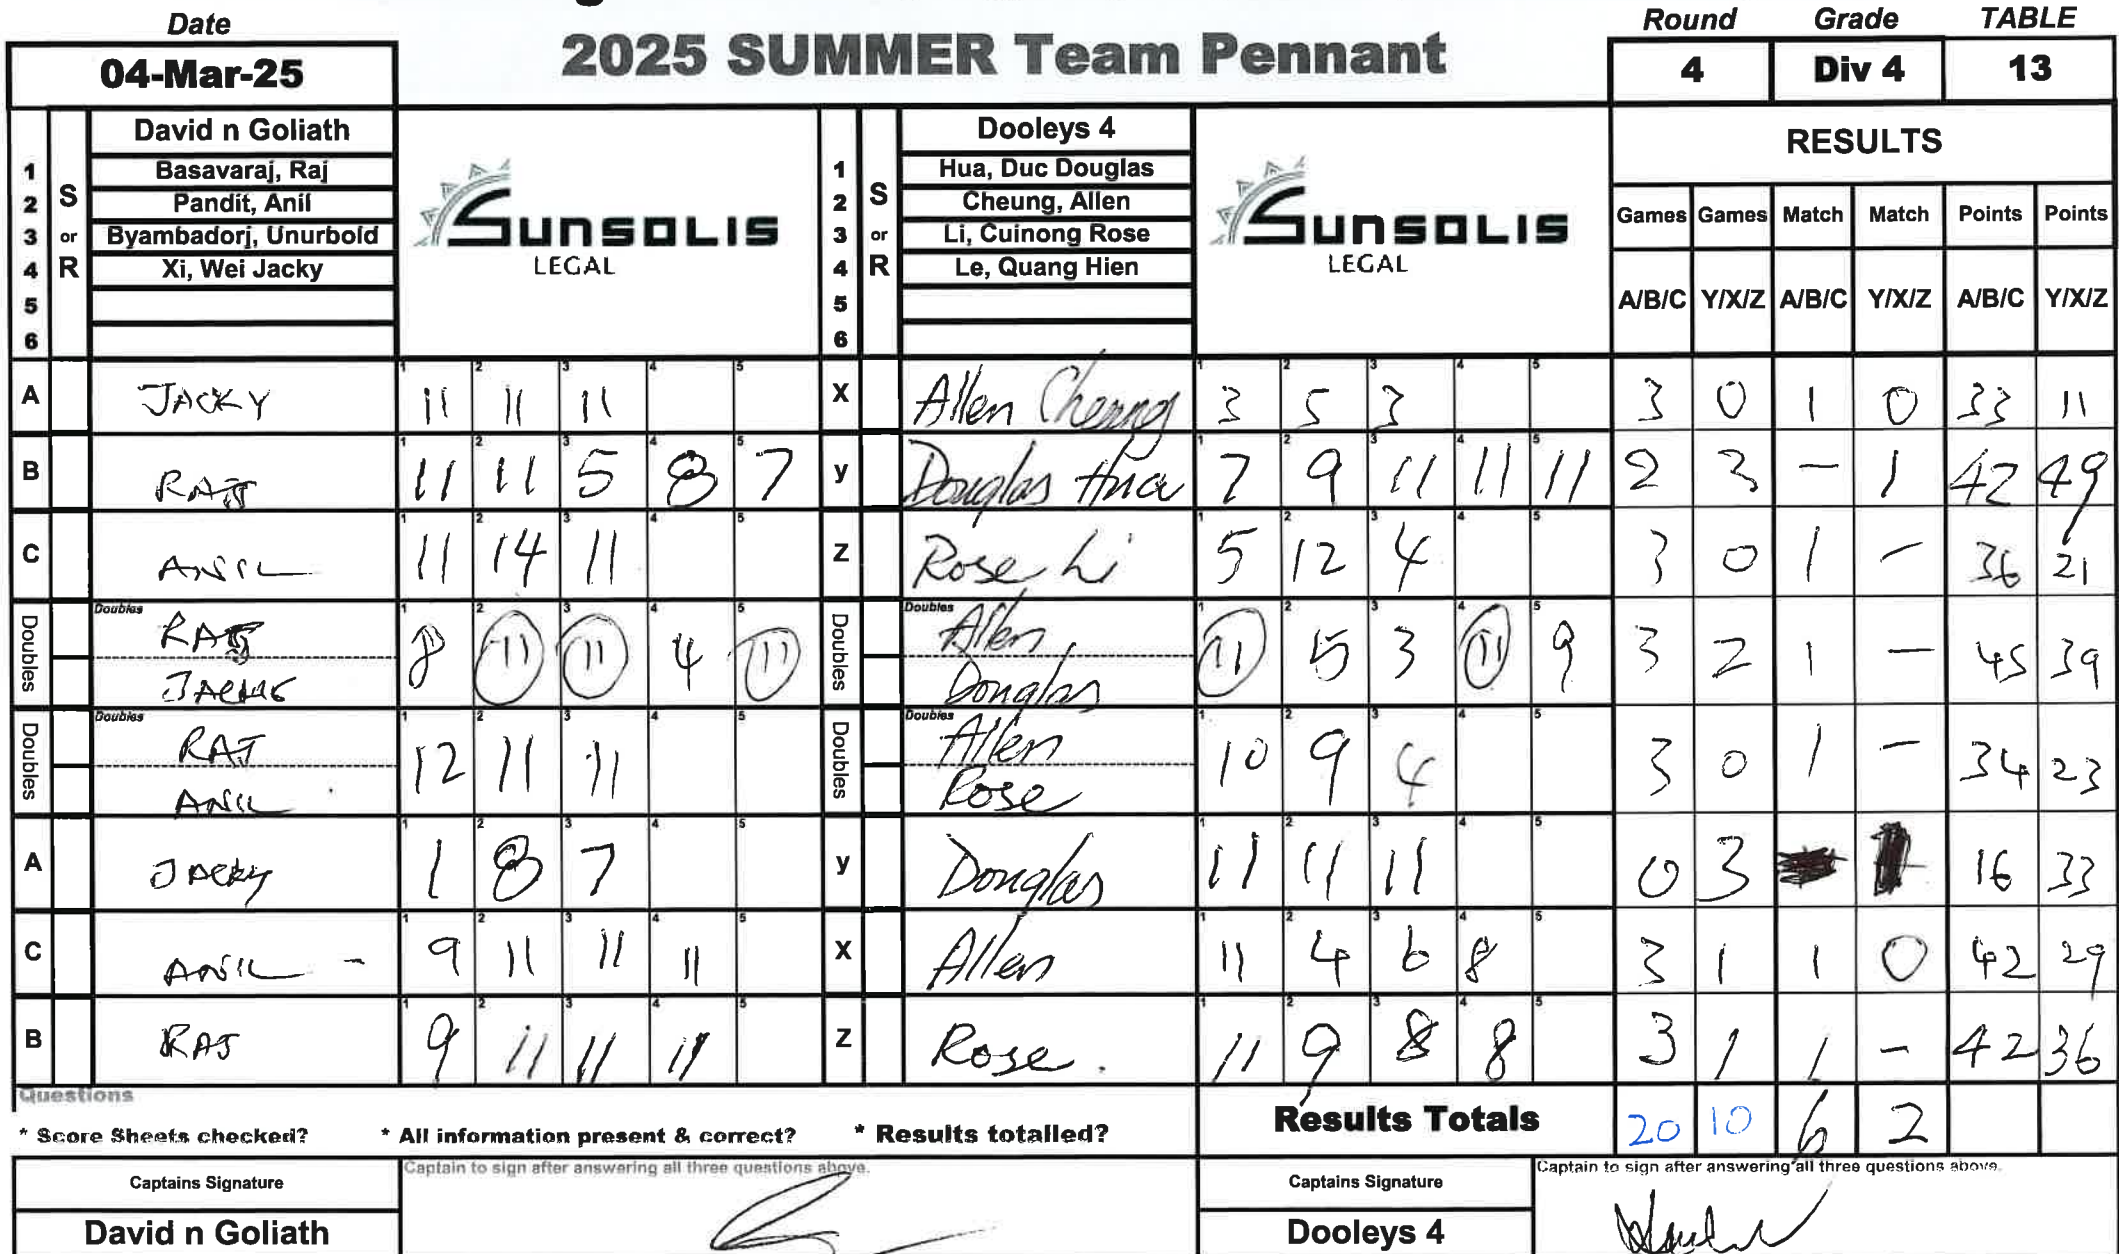 Date
04-Mar-25
2025 SUMMER Team Pennant
Round Grade TABLE
4 Div 4 13
David n Goliath
S or R
1 Basavaraj, Raj
2 Pandit, Anil
3 Byambadorj, Unurbold
4 Xi, Wei Jacky
5
6
SUNSOLIS
LEGAL
Dooleys 4
S or R
1 Hua, Duc Douglas
2 Cheung, Allen
3 Li, Cuinong Rose
4 Le, Quang Hien
5
6
SUNSOLIS
LEGAL
RESULTS
Games Games Match Match Points Points
A/B/C Y/X/Z A/B/C Y/X/Z A/B/C Y/X/Z
A JACKY 11 11 11 X Allen Cheung 3 5 3 3 0 1 0 33 11
B RAJ 11 11 5 8 7 y Douglas Hua 7 9 11 11 11 2 3 - 1 42 49
C ANIL 11 14 11 Z Rose Li 5 12 4 3 0 1 - 36 21
Doubles RAJ 8 11 11 4 11 Doubles Allen 11 5 3 11 9 3 2 1 - 45 39
Douglas
Doubles RAJ 12 11 11 Doubles Allen 10 9 4 3 0 1 - 34 23
ANIL Rose
A Jacky 1 8 7 y Douglas 11 11 11 0 3 1 16 33
C ANIL - 9 11 11 11 X Allen 11 4 6 8 3 1 1 0 42 29
B RAJ 9 11 11 11 Z Rose. 11 9 8 8 3 1 1 - 42 36
Questions
* Score Sheets checked? * All information present & correct? * Results totalled?
Results Totals 20 10 6 2
Captains Signature
Captain to sign after answering all three questions above.
David n Goliath
Captains Signature
Captain to sign after answering all three questions above.
Dooleys 4